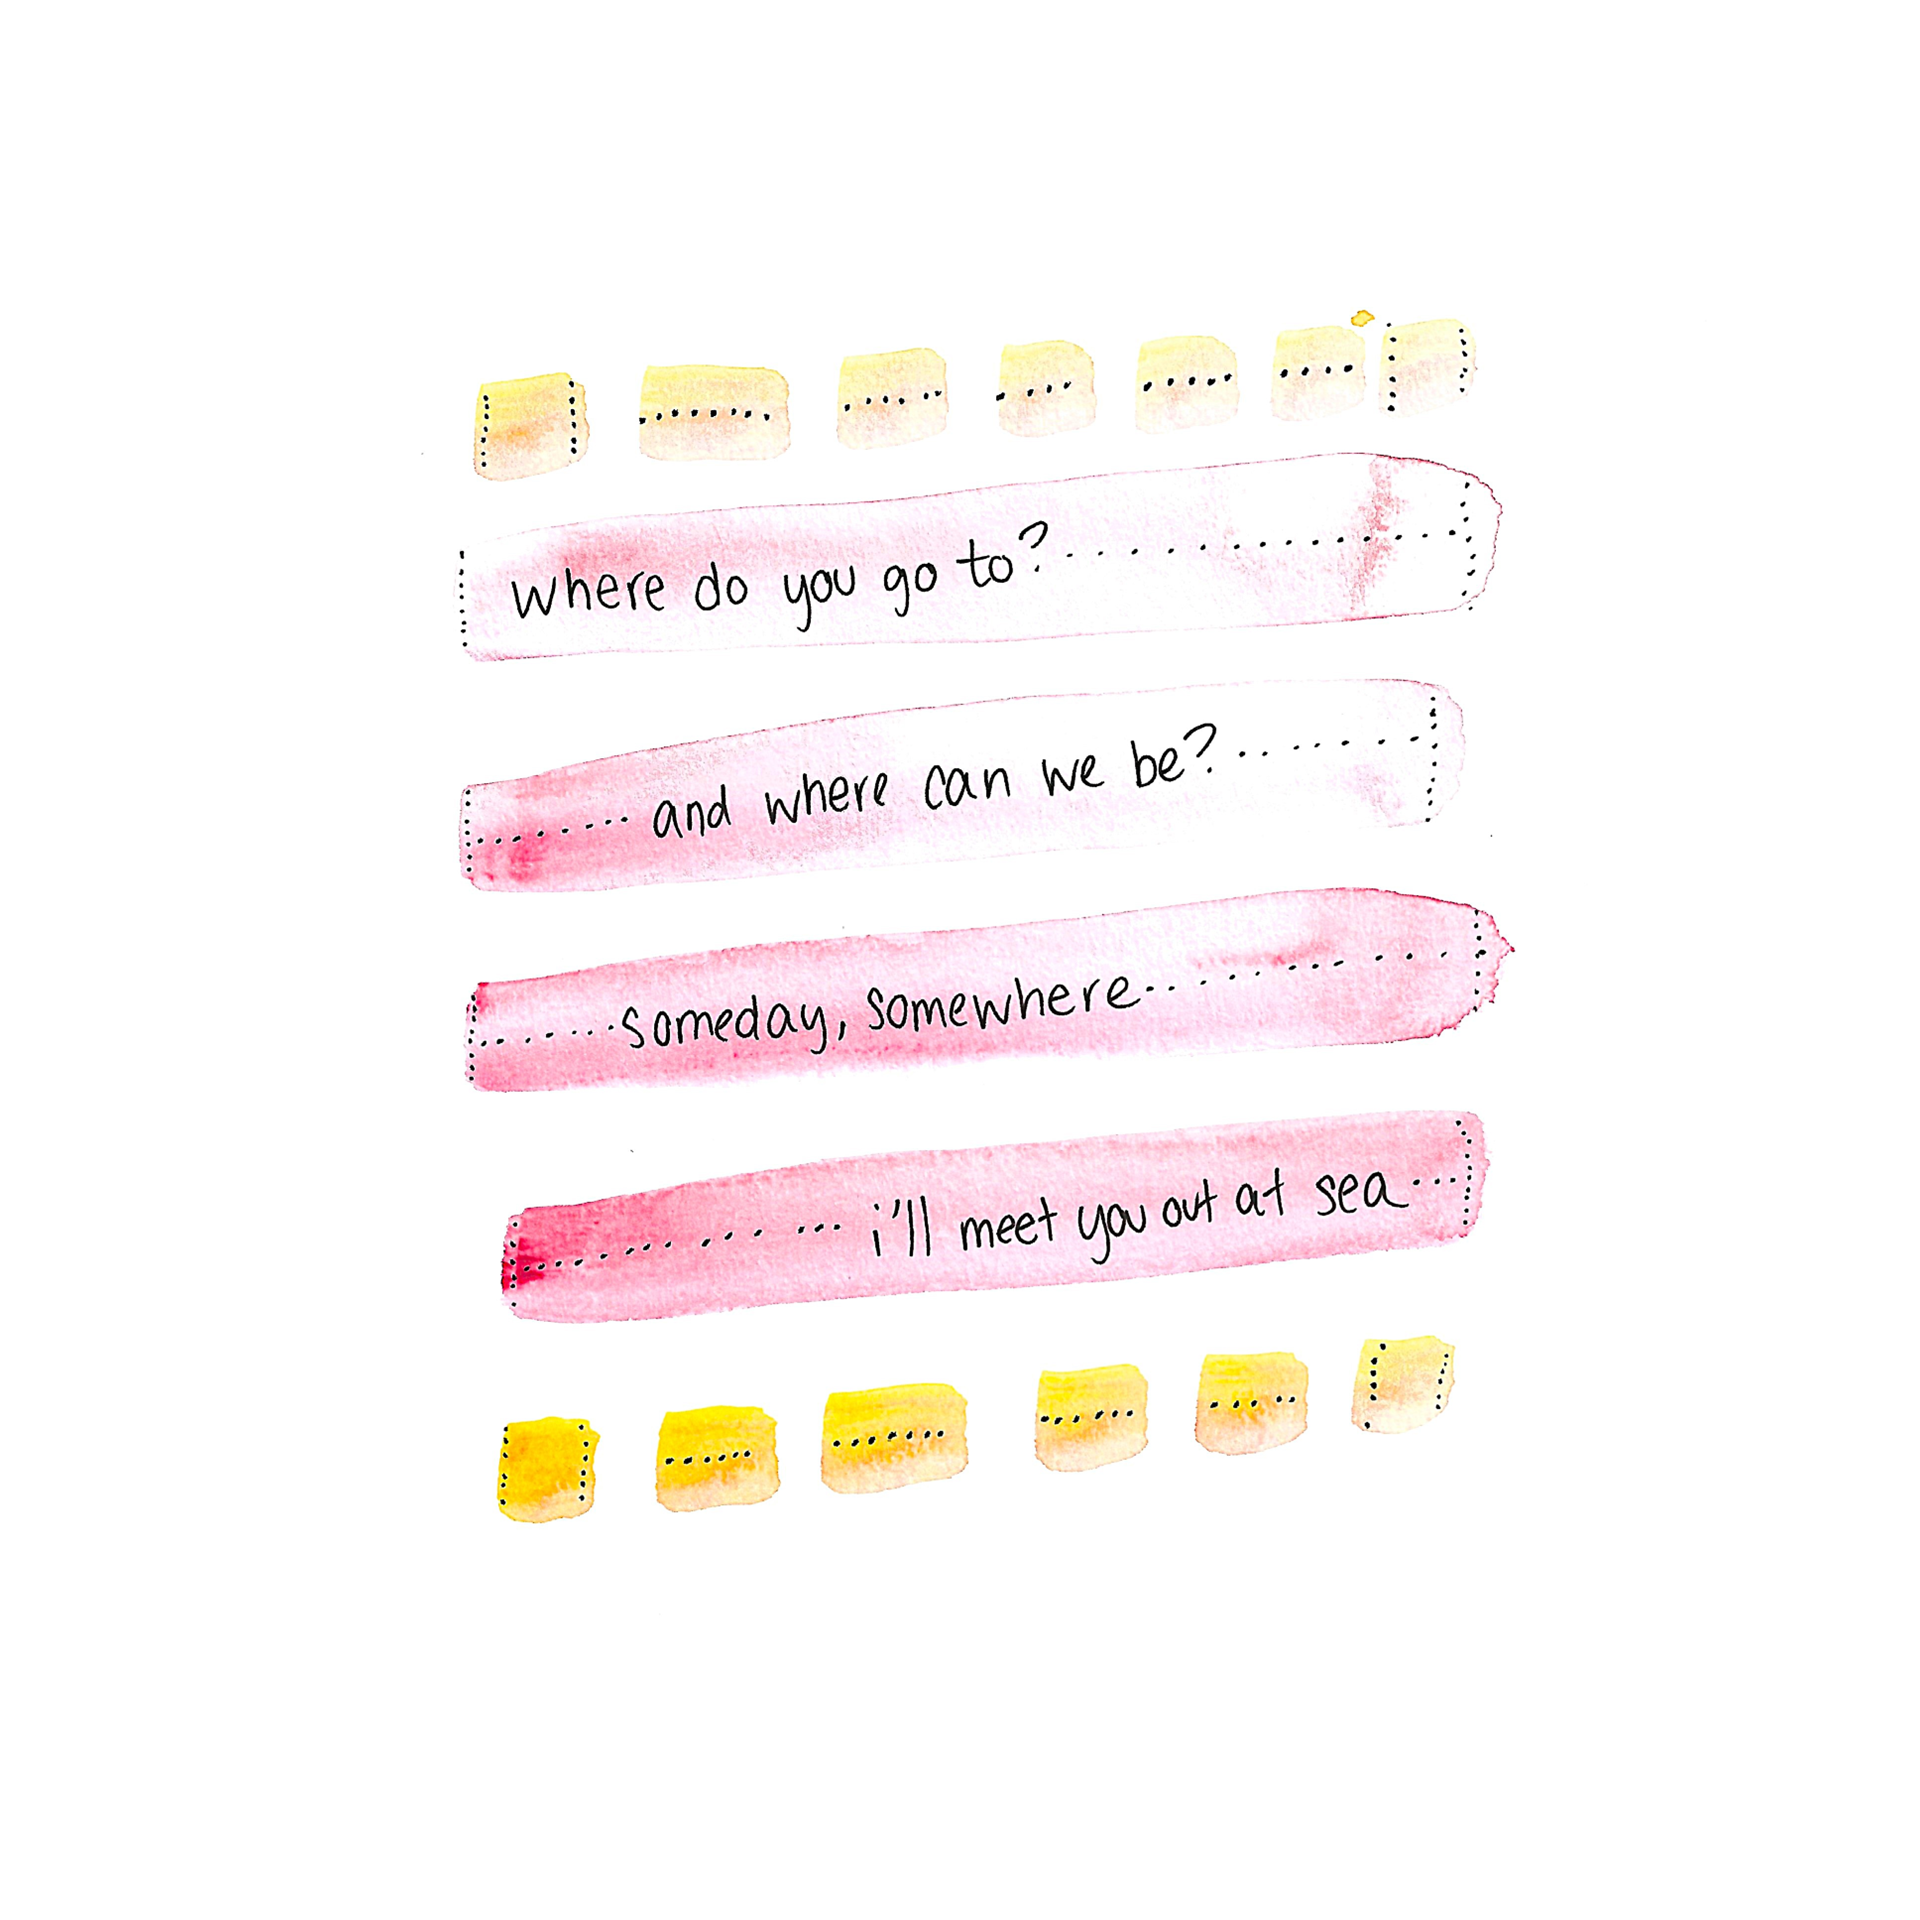 where do you go to?
and where can we be?
someday, somewhere
i'll meet you out at sea